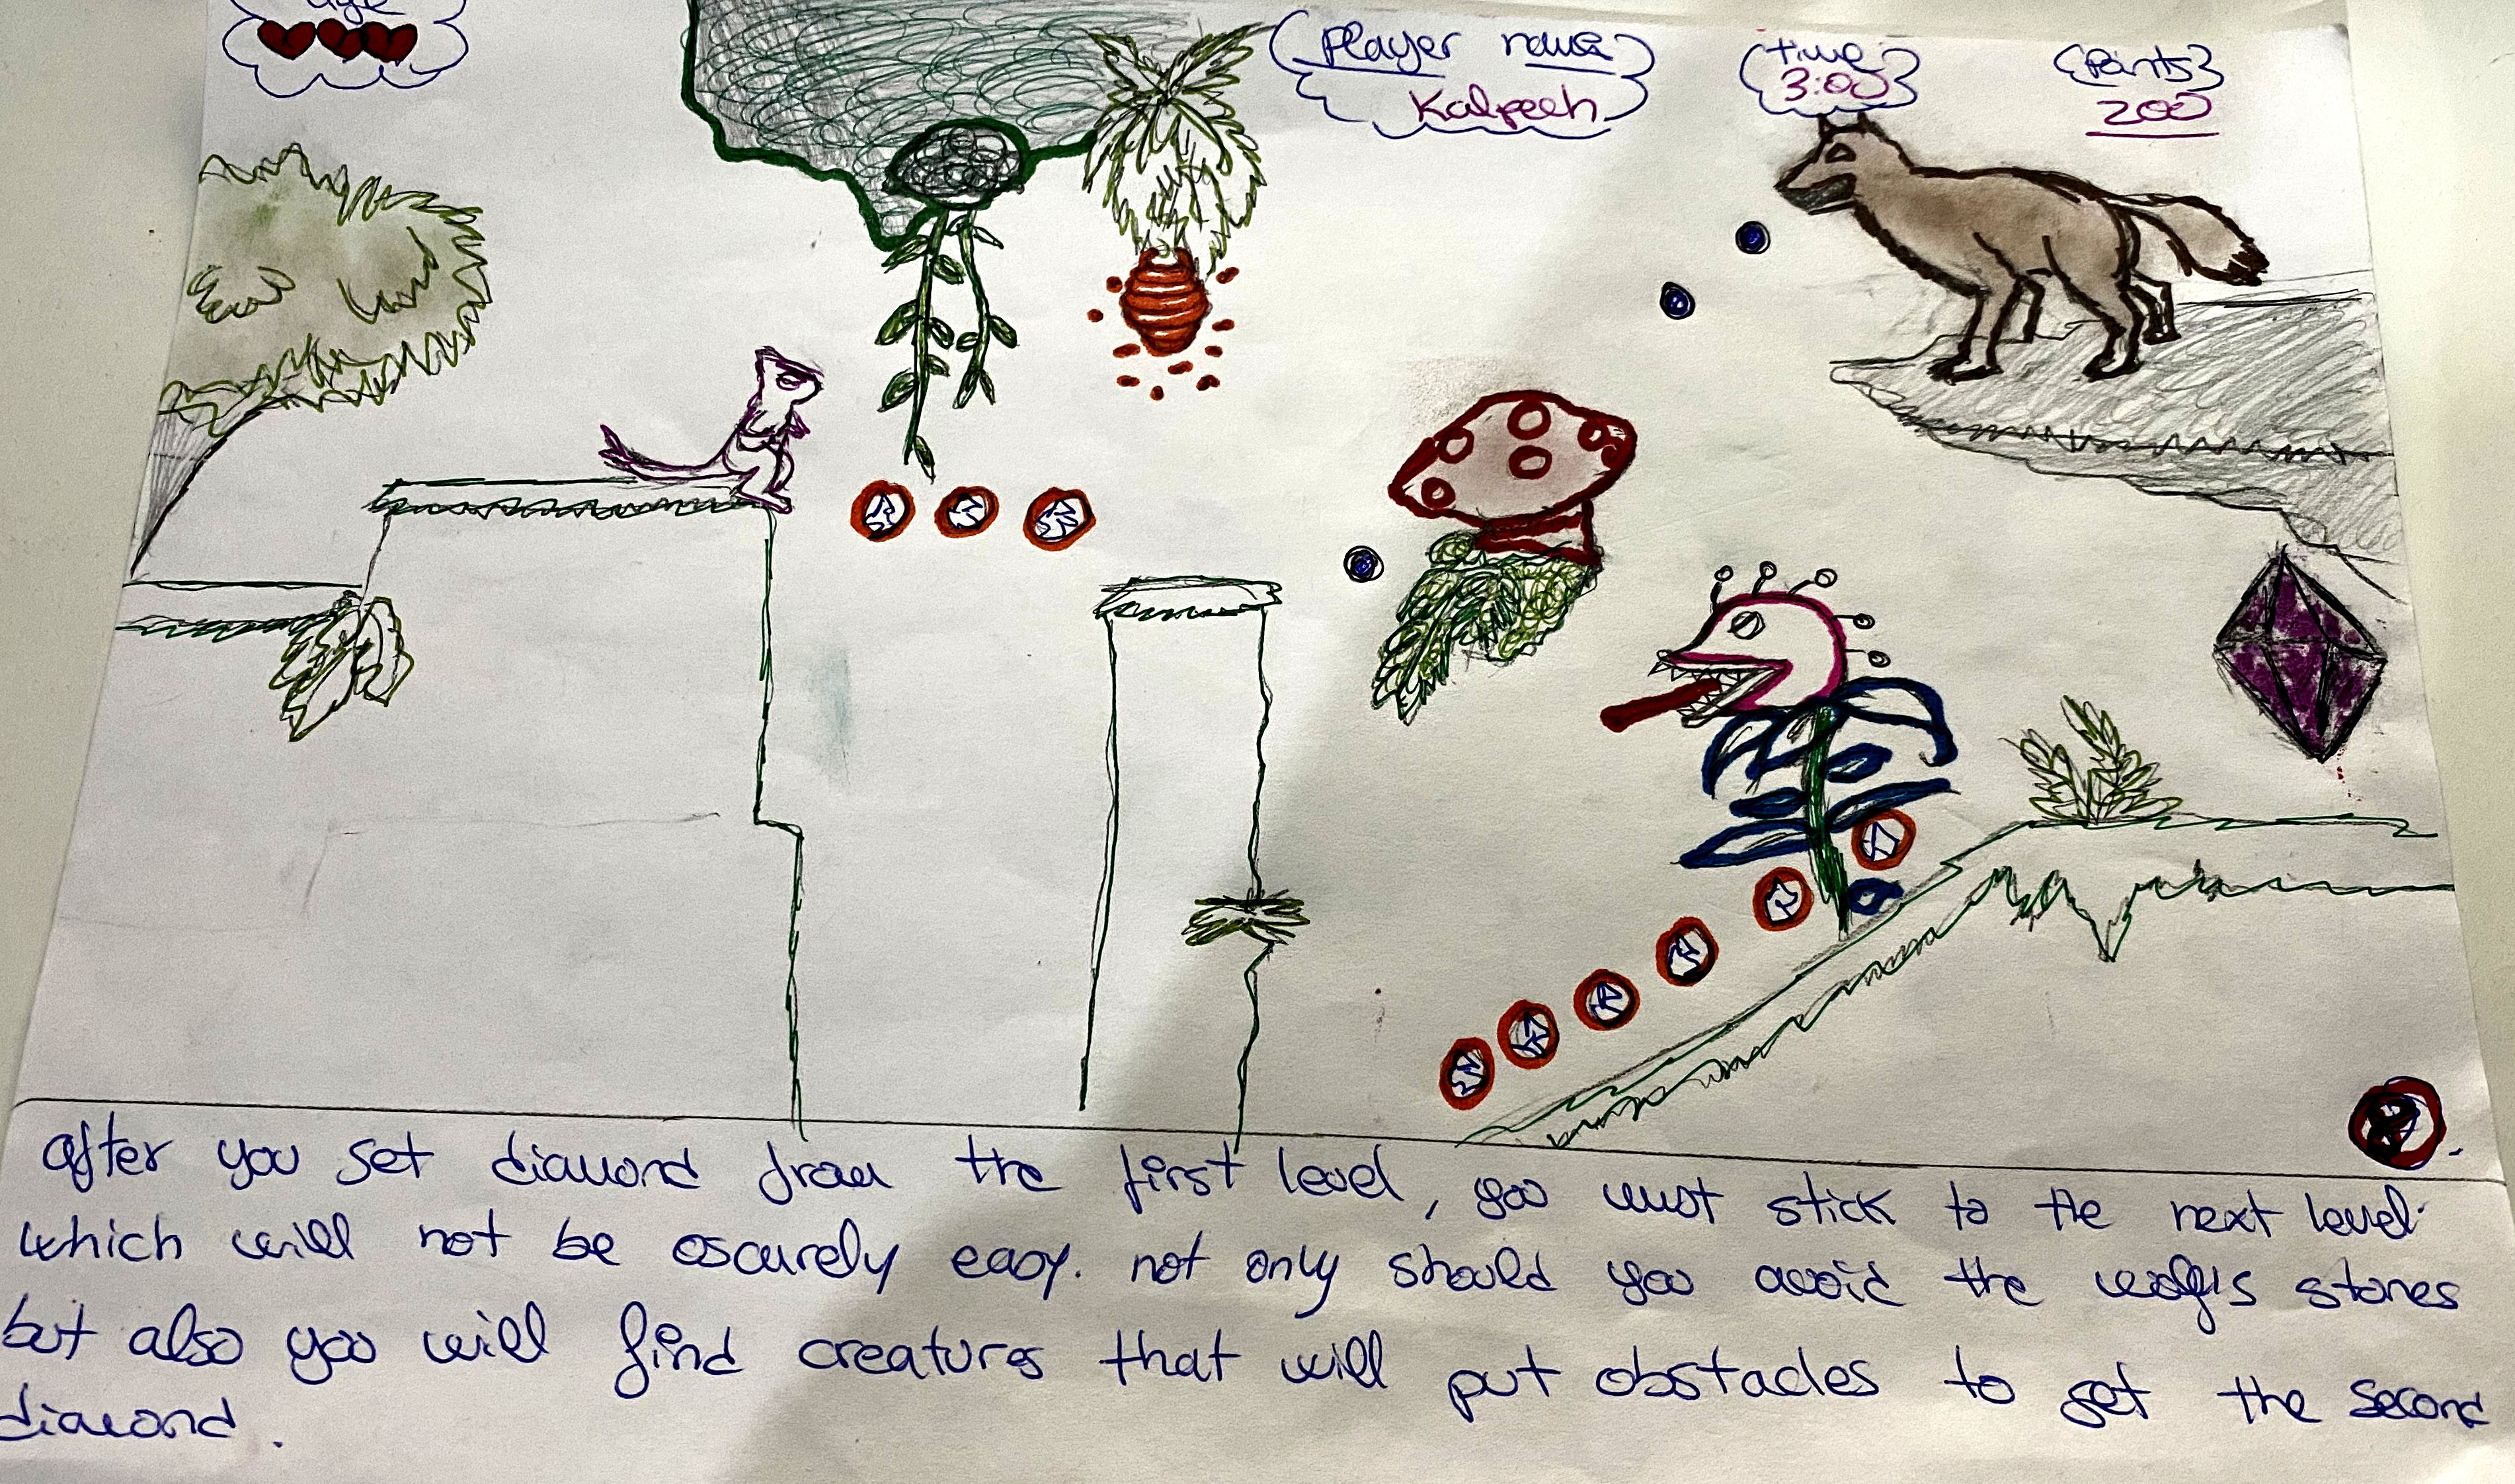 Player name
Kalpeeh
time
3:00
Points
200
after you get diamond from the first level, you must stick to the next level
which will not be easy. not only should you avoid the stones
but also you will find creatures that will put obstacles to get the second
diamond.